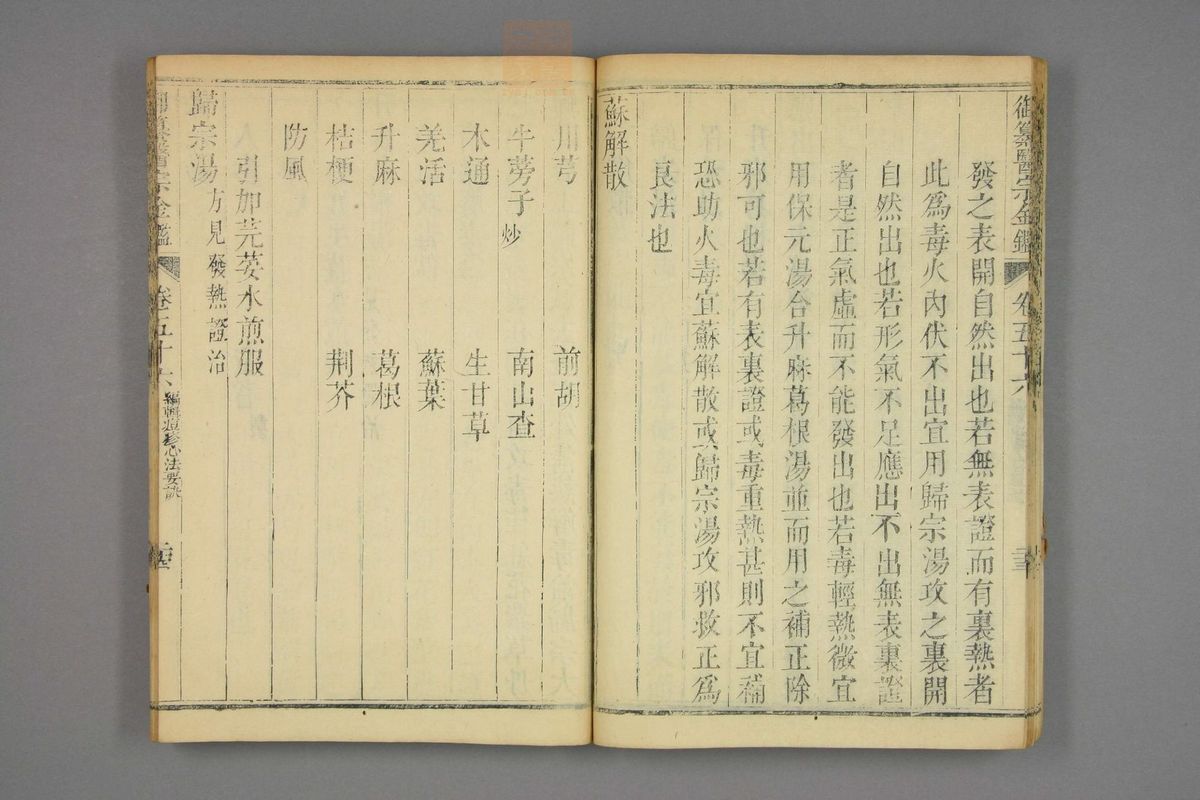 御纂醫宗金鑑 卷五十六
發之表開自然出也若無表證而有裏熱者
此爲毒火內伏不出宜用歸宗湯攻之裏開
自然出也若形氣不足應出不出無表裏證
者是正氣虛而不能發出也若毒輕熱微宜
用保元湯合升麻葛根湯並而用之補正除
邪可也若有表裏證或毒重熱甚則不宜補
恐助火毒宜蘇解散或歸宗湯攻邪救正爲
良法也
蘇解散
川芎 前胡
牛蒡子炒 南山查
木通 生甘草
羌活 蘇葉
升麻 葛根
桔梗 荆芥
防風
引加芫荽水煎服
歸宗湯方見發熱證治
御纂醫宗金鑑 卷五十六 編輯痘疹心法要訣